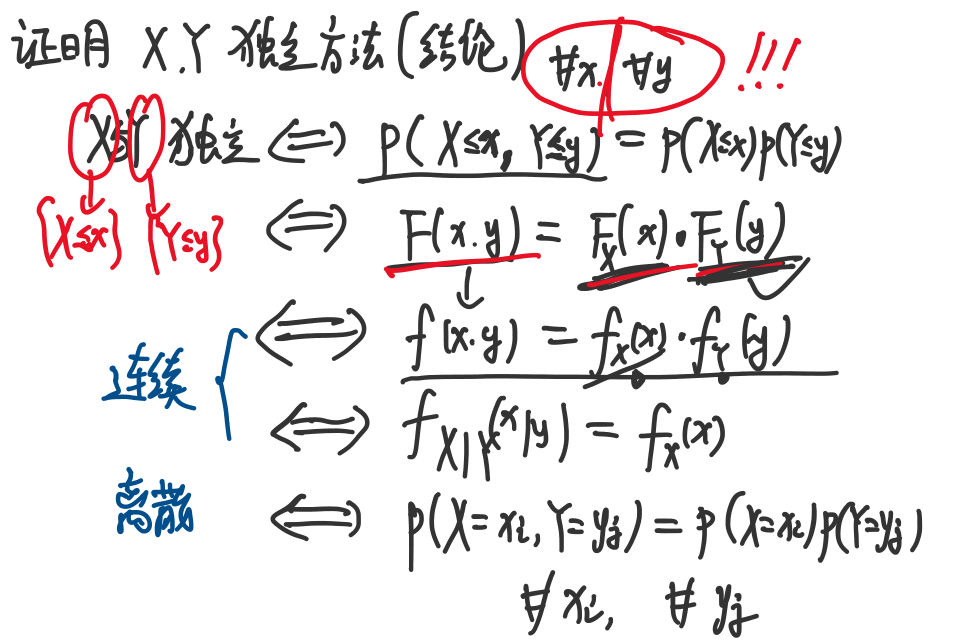 证明 X.Y 独立方法(结论) ∀x. ∀y !!!
X与Y 独立 ⟺ P( X≤x, Y≤y ) = P(X≤x)P(Y≤y)
{X≤x} {Y≤y} ⟺ F(x.y) = F_X(x)·F_Y(y)
⟺ f(x.y) = f_X(x)·f_Y(y)
连续 ⟺ f_{X|Y}(x|y) = f_X(x)
离散 ⟺ P(X=x_i, Y=y_j) = P(X=x_i)P(Y=y_j)
∀x_i, ∀ y_j